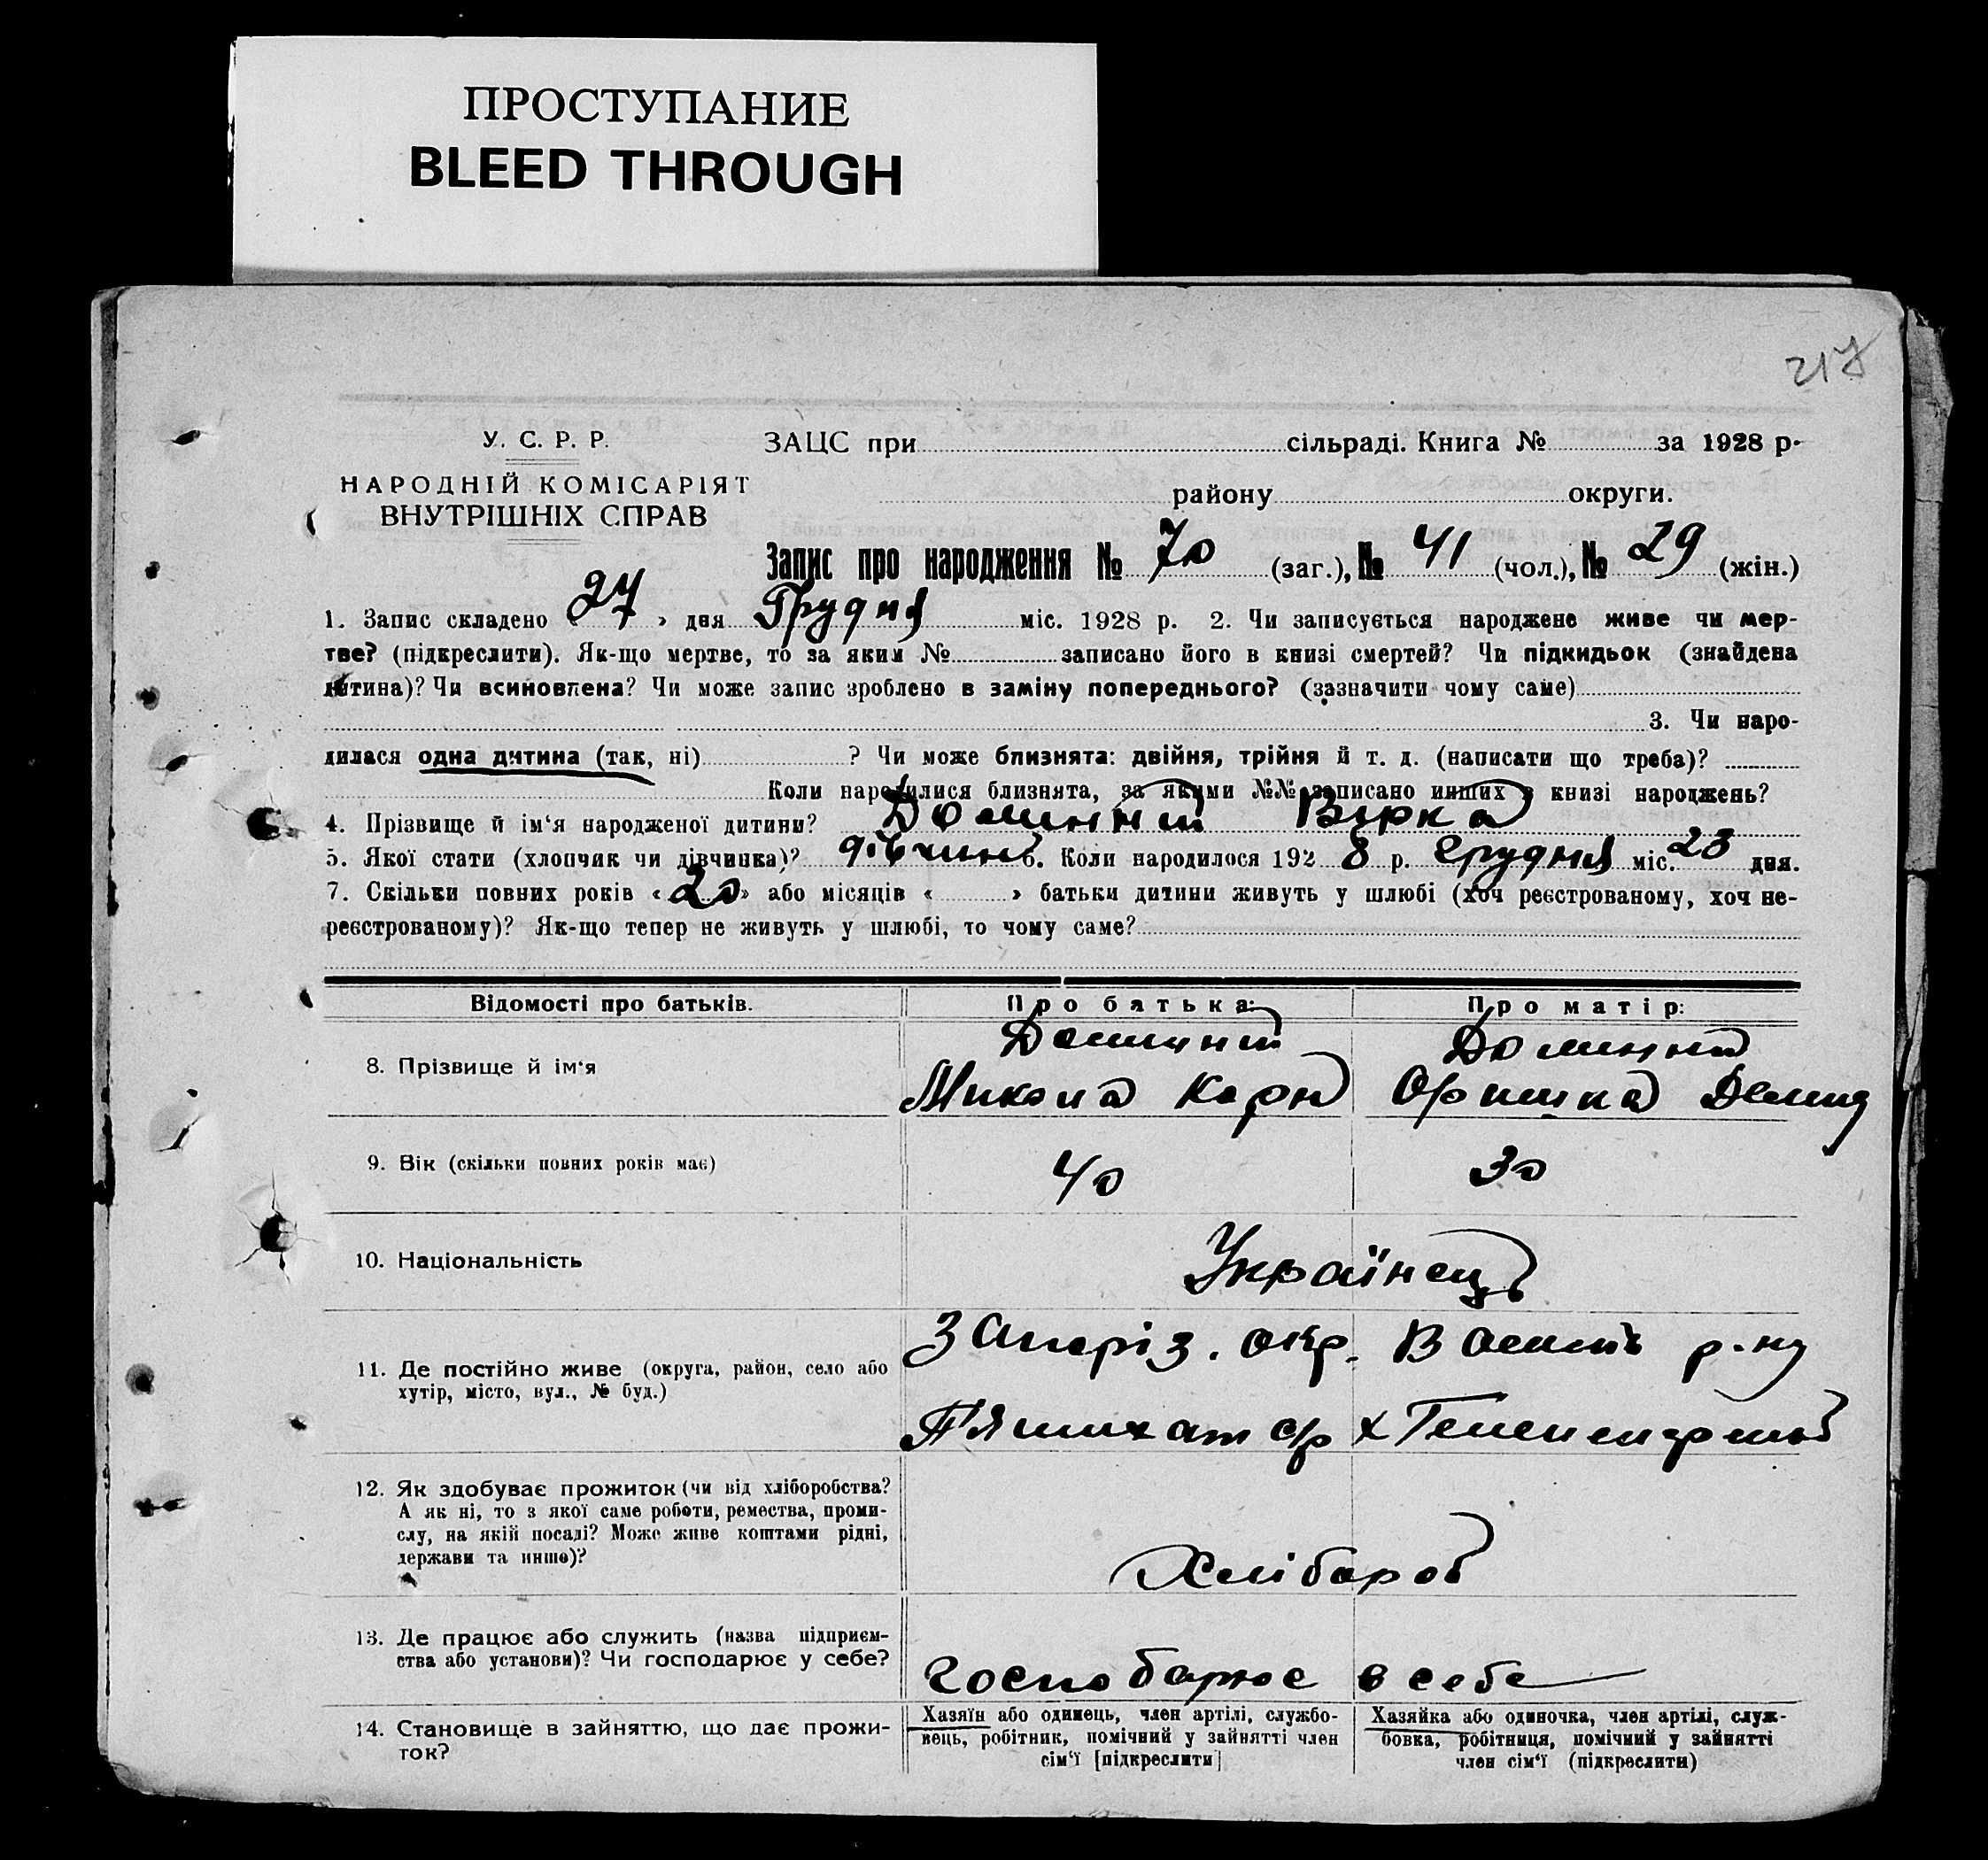 ПРОСТУПАНИЕ
BLEED THROUGH
217
У. С. Р. Р.
НАРОДНІЙ КОМІСАРІЯТ
ВНУТРІШНІХ СПРАВ
ЗАЦС при сільраді. Книга № за 1928 р.
району округи.
Запис про народження № 70 (заг.), № 41 (чол.), № 29 (жін.)
1. Запис складено 27 » дня Грудня міс. 1928 р. 2. Чи записується народжене живе чи мер-
тве? (підкреслити). Як-що мертве, то за яким № записано його в книзі смертей? Чи підкидьок (знайдена
дитина)? Чи всиновлена? Чи може запис зроблено в заміну попереднього? (зазначити чому саме)
3. Чи наро-
дилася одна дитина (так, ні) ? Чи може близнята: двійня, трійня й т. д. (написати що треба)?
Коли народилися близнята, за якими №№ записано инших в книзі народжень?
4. Прізвище й ім‘я народженої дитини? Вірка
5. Якої стати (хлопчик чи дівчинка)? дівчина 6. Коли народилося 1928 р. Грудня міс. 23 дня.
7. Скільки повних років «20» або місяців « » батьки дитини живуть у шлюбі (хоч реєстрованому, хоч не-
реєстрованому)? Як-що тепер не живуть у шлюбі, то чому саме?
Відомості про батьків. Про батька: Про матір:
8. Прізвище й ім‘я
Микола Карн Оришка Демид
9. Вік (скільки повних років має) 40 30
10. Національність Українець
11. Де постійно живе (округа, район, село або
хутір, місто, вул., № буд.)
Запоріз. окр. Василь р-ну
П'ятихат с/р х
12. Як здобуває прожиток (чи від хліборобства?
А як ні, то з якої саме роботи, ремества, проми-
слу, на якій посаді? Може живе коштами рідні,
держави та инше)?
Хлібороб
13. Де працює або служить (назва підприєм-
ства або установи)? Чи господарює у себе?
господарює в себе
14. Становище в зайняттю, що дає прожи-
ток?
Хазяїн або одинець, член артілі, службо-
вець, робітник, помічний у зайнятті член
сім‘ї [підкреслити]
Хазяйка або одиночка, член артілі, служ-
бовка, робітниця, помічний у зайнятті
член сім‘ї (підкреслити)